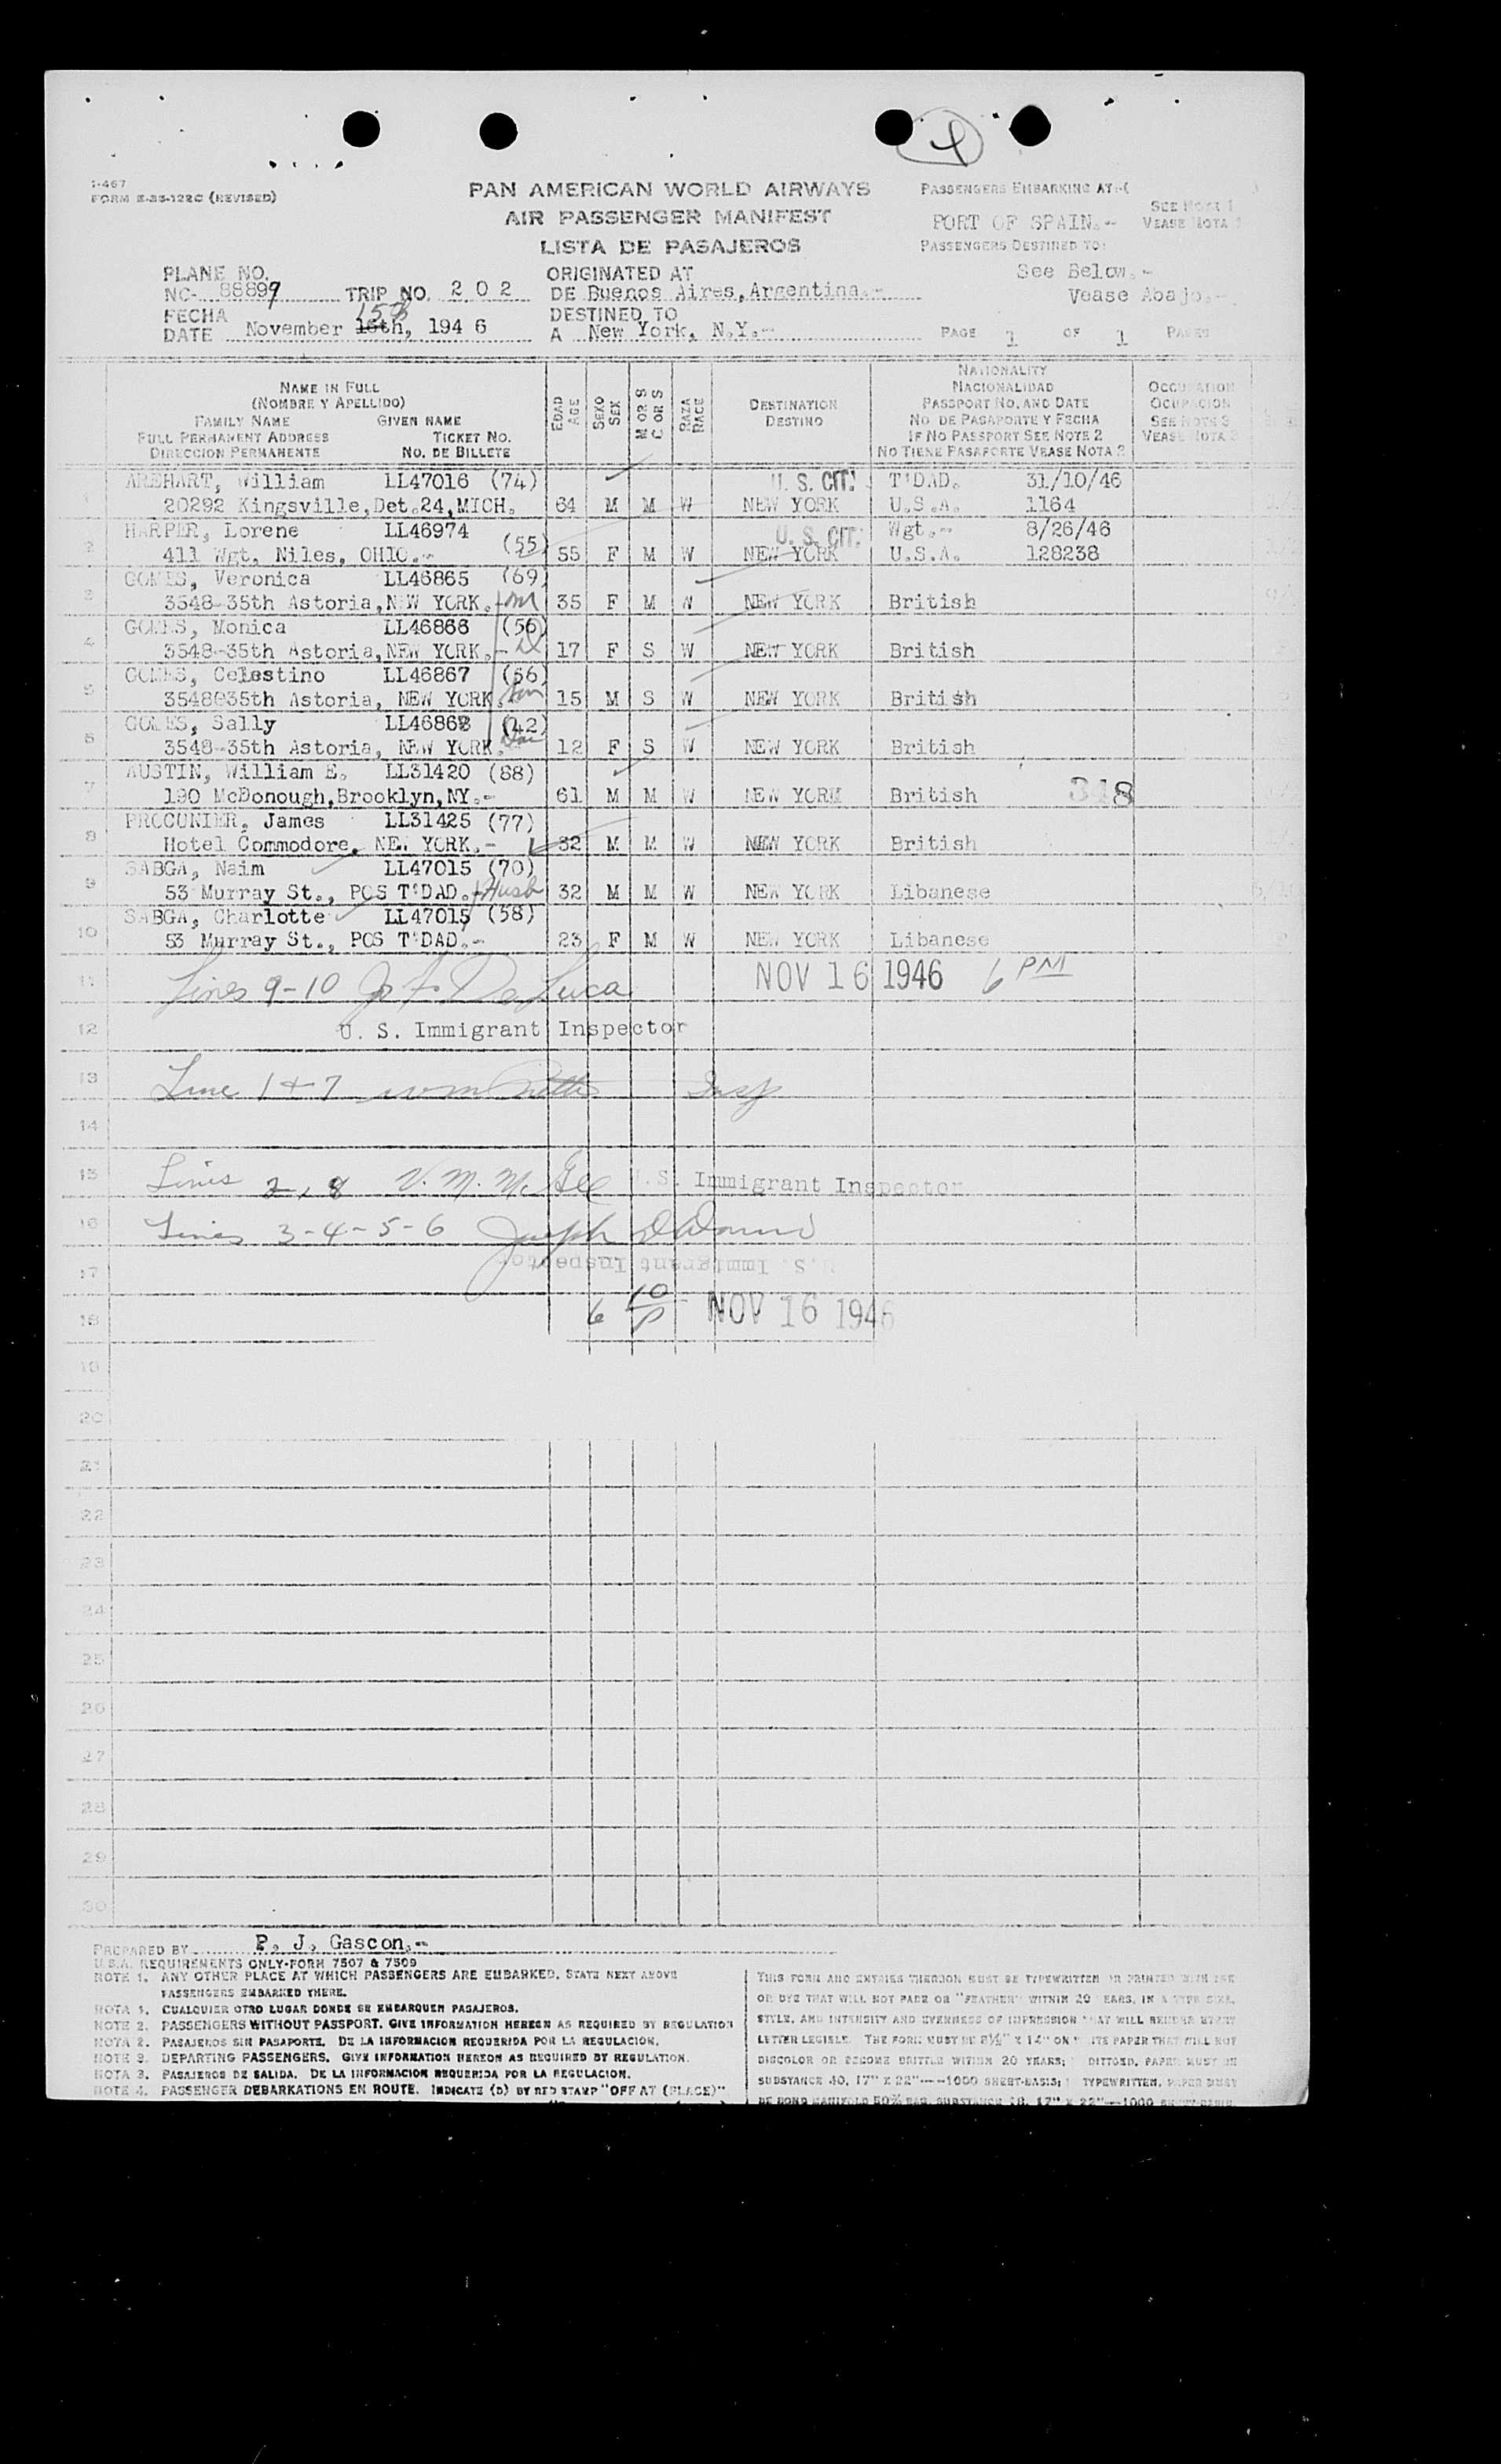 4
I-467
FORM E-33-122C (REVISED)
PAN AMERICAN WORLD AIRWAYS
AIR PASSENGER MANIFEST
LISTA DE PASAJEROS
PASSENGERS EMBARKING AT:-(
SEE NOTE 1
PORT OF SPAIN.-
VEASE NOTA 1
PASSENGERS DESTINED TO:
See Below.-
Vease Abajo.-
PLANE NO.
NC- 88899 TRIP NO. 2 0 2
ORIGINATED AT
DE Buenos Aires, Argentina.-
FECHA
DATE November 16th, 1946
15th
DESTINED TO
A New York, N.Y.-
PAGE 1 OF 1 PAGES
NAME IN FULL
(NOMBRE Y APELLIDO)
FAMILY NAME GIVEN NAME
FULL PERMANENT ADDRESS TICKET NO.
DIRECCION PERMANENTE NO. DE BILLETE
EDAD AGE
SEXO SEX
M OR S C OR S
RAZA RACE
DESTINATION
DESTINO
NATIONALITY
NACIONALIDAD
PASSPORT NO. AND DATE
NO. DE PASAPORTE Y FECHA
IF NO PASSPORT SEE NOTE 2
NO TIENE PASAPORTE VEASE NOTA 2
OCCUPATION
OCUPACION
SEE NOTE 3
VEASE NOTA 3
AREHART, William LL47016 (74) U. S. CIT. T'DAD. 31/10/46
1 20292 Kingsville, Det.24, MICH. 64 M M W NEW YORK U.S.A. 1164
HARPER, Lorene LL46974 (55) U. S. CIT. Wgt.- 8/26/46
2 411 Wgt. Niles, OHIO.- 55 F M W NEW YORK U.S.A. 128238
GOMES, Veronica LL46865 (69)
3 3548-35th Astoria, NEW YORK.- M 35 F M W NEW YORK British
GOMES, Monica LL46866 (56)
4 3548-35th Astoria, NEW YORK.- D 17 F S W NEW YORK British
GOMES, Celestino LL46867 (56)
5 3548@35th Astoria, NEW YORK. Son 15 M S W NEW YORK British
GOMES, Sally LL46868 (42)
6 3548-35th Astoria, NEW YORK. Dau 12 F S W NEW YORK British
AUSTIN, William E. LL31420 (88)
7 190 McDonough, Brooklyn, NY.- 61 M M W NEW YORK British 348
PROCUNIER, James LL31425 (77)
8 Hotel Commodore, NEW YORK.- 32 M M W NEW YORK British
SABGA, Naim LL47015 (70)
9 53 Murray St., POS T'DAD.- Husb 32 M M W NEW YORK Libanese
SABGA, Charlotte LL47015 (58)
10 53 Murray St., POS T'DAD.- 23 F M W NEW YORK Libanese
11 Lines 9-10 De Luca NOV 16 1946 6 PM
12 U. S. Immigrant Inspector
13 Line 1 + 7 Wm Insp
14
15 Lines 2, 8 V. M. McGee U.S. Immigrant Inspector
16 Lines 3-4-5-6 Joseph
17 U.S. Immigrant Inspector
18 6 10 P NOV 16 1946
19
20
21
22
23
24
25
26
27
28
29
30
PREPARED BY P. J. Gascon.-
U.S.A. REQUIREMENTS ONLY-FORM 7507 & 7509
NOTE 1. ANY OTHER PLACE AT WHICH PASSENGERS ARE EMBARKED, STATE NEXT ABOVE
PASSENGERS EMBARKED THERE.
NOTA 1. CUALQUIER OTRO LUGAR DONDE SE EMBARQUEN PASAJEROS.
NOTE 2. PASSENGERS WITHOUT PASSPORT. GIVE INFORMATION HEREON AS REQUIRED BY REGULATION
NOTA 2. PASAJEROS SIN PASAPORTE. DE LA INFORMACION REQUERIDA POR LA REGULACION.
NOTE 3. DEPARTING PASSENGERS. GIVE INFORMATION HEREON AS REQUIRED BY REGULATION.
NOTA 3. PASAJEROS DE SALIDA. DE LA INFORMACION REQUERIDA POR LA REGULACION.
NOTE 4. PASSENGER DEBARKATIONS EN ROUTE. INDICATE (D) BY RED STAMP "OFF AT (PLACE)"
THIS FORM AND ENTRIES THEREON MUST BE TYPEWRITTEN OR PRINTED WITH INK
OR DYE THAT WILL NOT FADE OR "FEATHER" WITHIN 20 YEARS, IN A TYPE SIZE,
STYLE, AND INTENSITY AND EVENNESS OF IMPRESSION THAT WILL RENDER EVERY
LETTER LEGIBLE. THE FORM MUST BE 8½" X 14" ON WHITE PAPER THAT WILL NOT
DISCOLOR OR BECOME BRITTLE WITHIN 20 YEARS; DITTOED, PAPER MUST BE
SUBSTANCE 40, 17" X 22"--1000 SHEET-BASIS; TYPEWRITTEN, PAPER MUST
BE BOND MANIFOLD 50% RAG, SUBSTANCE 18, 17" X 22"--1000 SHEET-BASIS